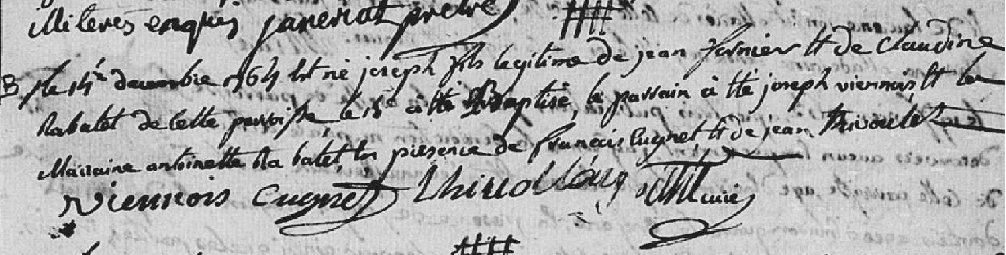 illiterés enquis janeriat pretre
B / le 14e decembre 1764 Est né joseph fils legitime de jean fornier Et de Claudine
Rabatet de cette paroisse, le 15e a été Baptisé, le parrain a été joseph viennois Et la
Marraine antoinette Rabatet, En présence de francois Cugnet, Et de jean thivoulet
Viennois Cugnet thivollet curé